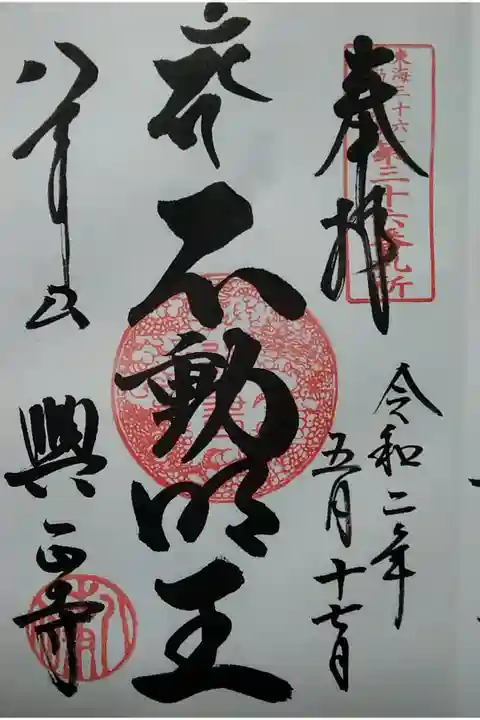 奉拝
東海三十六
三十六番札所
令和二年
五月十七日
不動明王
八事山
興正寺